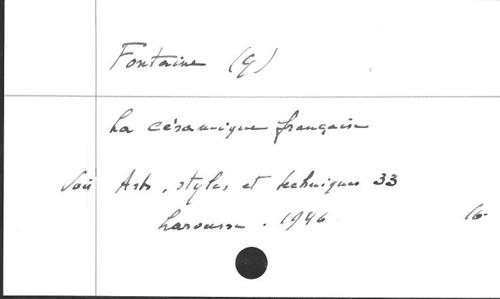 Fontaine (G)
La céramique française
Voir Arts, styles et techniques 33
Larousse. 1946. 16.